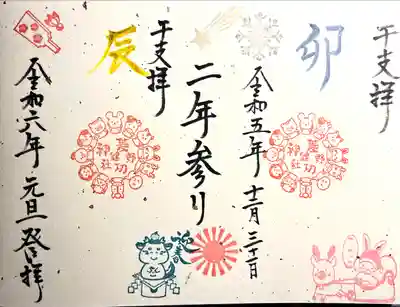 干支拝
卯
令和五年 十二月 三十一日
二年参り
干支拝
辰
令和六年 元旦 登拝
迎春